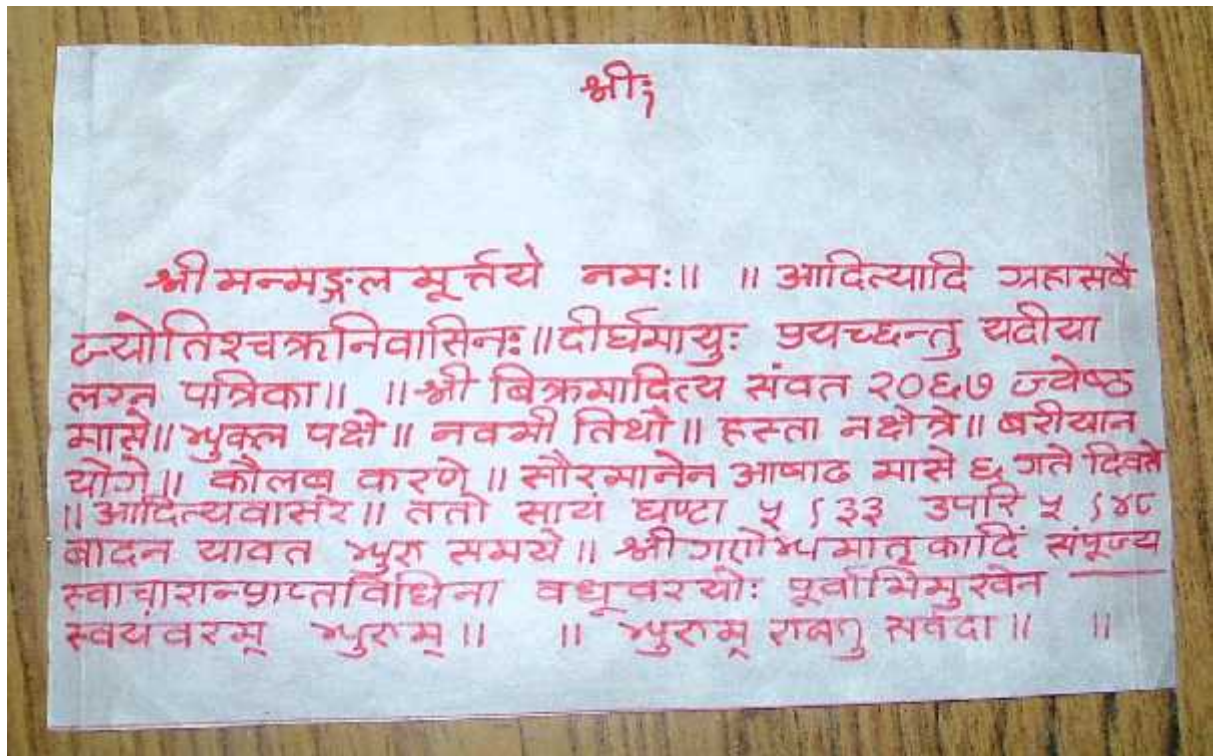 श्रीः
श्रीमन्मङ्गल मूर्त्तये नमः॥ ॥ आदित्यादि ग्रहासर्वे
ज्योतिश्चक्रनिवासिनः॥दीर्घमायुः प्रयच्छन्तु यदीया
लग्न पत्रिका॥ ॥श्री बिक्रमादित्य संवत २०६७ ज्येष्ठ
मासे॥शुक्ल पक्षे॥ नवमी तिथौ॥ हस्ता नक्षेत्रे॥ बरीयान
योगे॥ कौलब करणे॥ सौरमानेन आषाढ मासे ६ गते दिवसे
॥आदित्यवासरे॥ ततो सायं घण्टा ५।३३ उपरि ५।४८
बादन यावत शुभ समये॥ श्रीगणेशमातृकादिं संपूज्य
स्वाचारान्प्राप्तविधिना वधूवरयोः पूर्वाभिमुखेन
स्वयंवरम् शुभम्॥ ॥ शुभम् सर्वदा॥ ॥